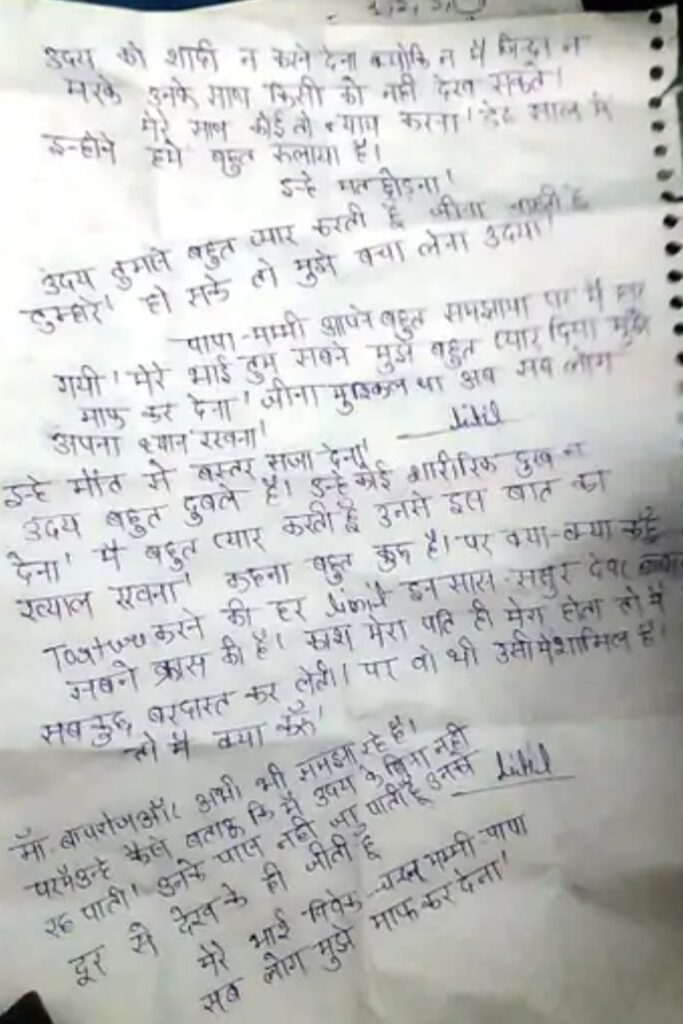 1, 2, 3,
उदय की शादी न करने देना क्योकि न मै जिन्दा न
मरके उनके साथ किसी को नही देख सकते।
मेरे साथ कोई तो न्याय करना! डेढ साल मे
इन्होने हमे बहुत रूलाया है।
इन्हे मत छोड़ना!
उदय तुमसे बहुत प्यार करती हूँ जीना चाहती हूँ
तुम्हारे! हो सके तो मुझे बचा लेना उदय!
पापा-मम्मी आपने बहुत समझाया पर मै हार
गयी! मेरे भाई तुम सबने मुझे बहुत प्यार दिया मुझे
माफ कर देना! जीना मुश्किल था अब सब लोग
अपना ध्यान रखना!
इन्हे मौत से बत्तर सजा देना!
उदय बहुत दुबले है। उन्हे कोई शारीरिक दुख न
देना! मै बहुत प्यार करती हूँ उनसे इस बात का
ख्याल रखना! कहना बहुत कुछ है। पर क्या-क्या कहूँ
करने की हर limit इन सास-ससुर देवर
सबने क्रास की है। काश मेरा पति ही मेरा होता तो मै
सब कुछ बरदास्त कर लेती। पर वो भी उसीमे शामिल है।
तो मै क्या करूँ!
माँ-बाप रोज और अभी भी समझा रहे है।
पर मै उन्हे कैसे बताऊ कि मै उदय के बिना नही
रह पाती! उनके पास नही जा पाती हूँ उनसे
दूर से देख के ही जीती हूँ
मेरे भाई विवेक मम्मी-पापा
सब लोग मुझे माफ कर देना!